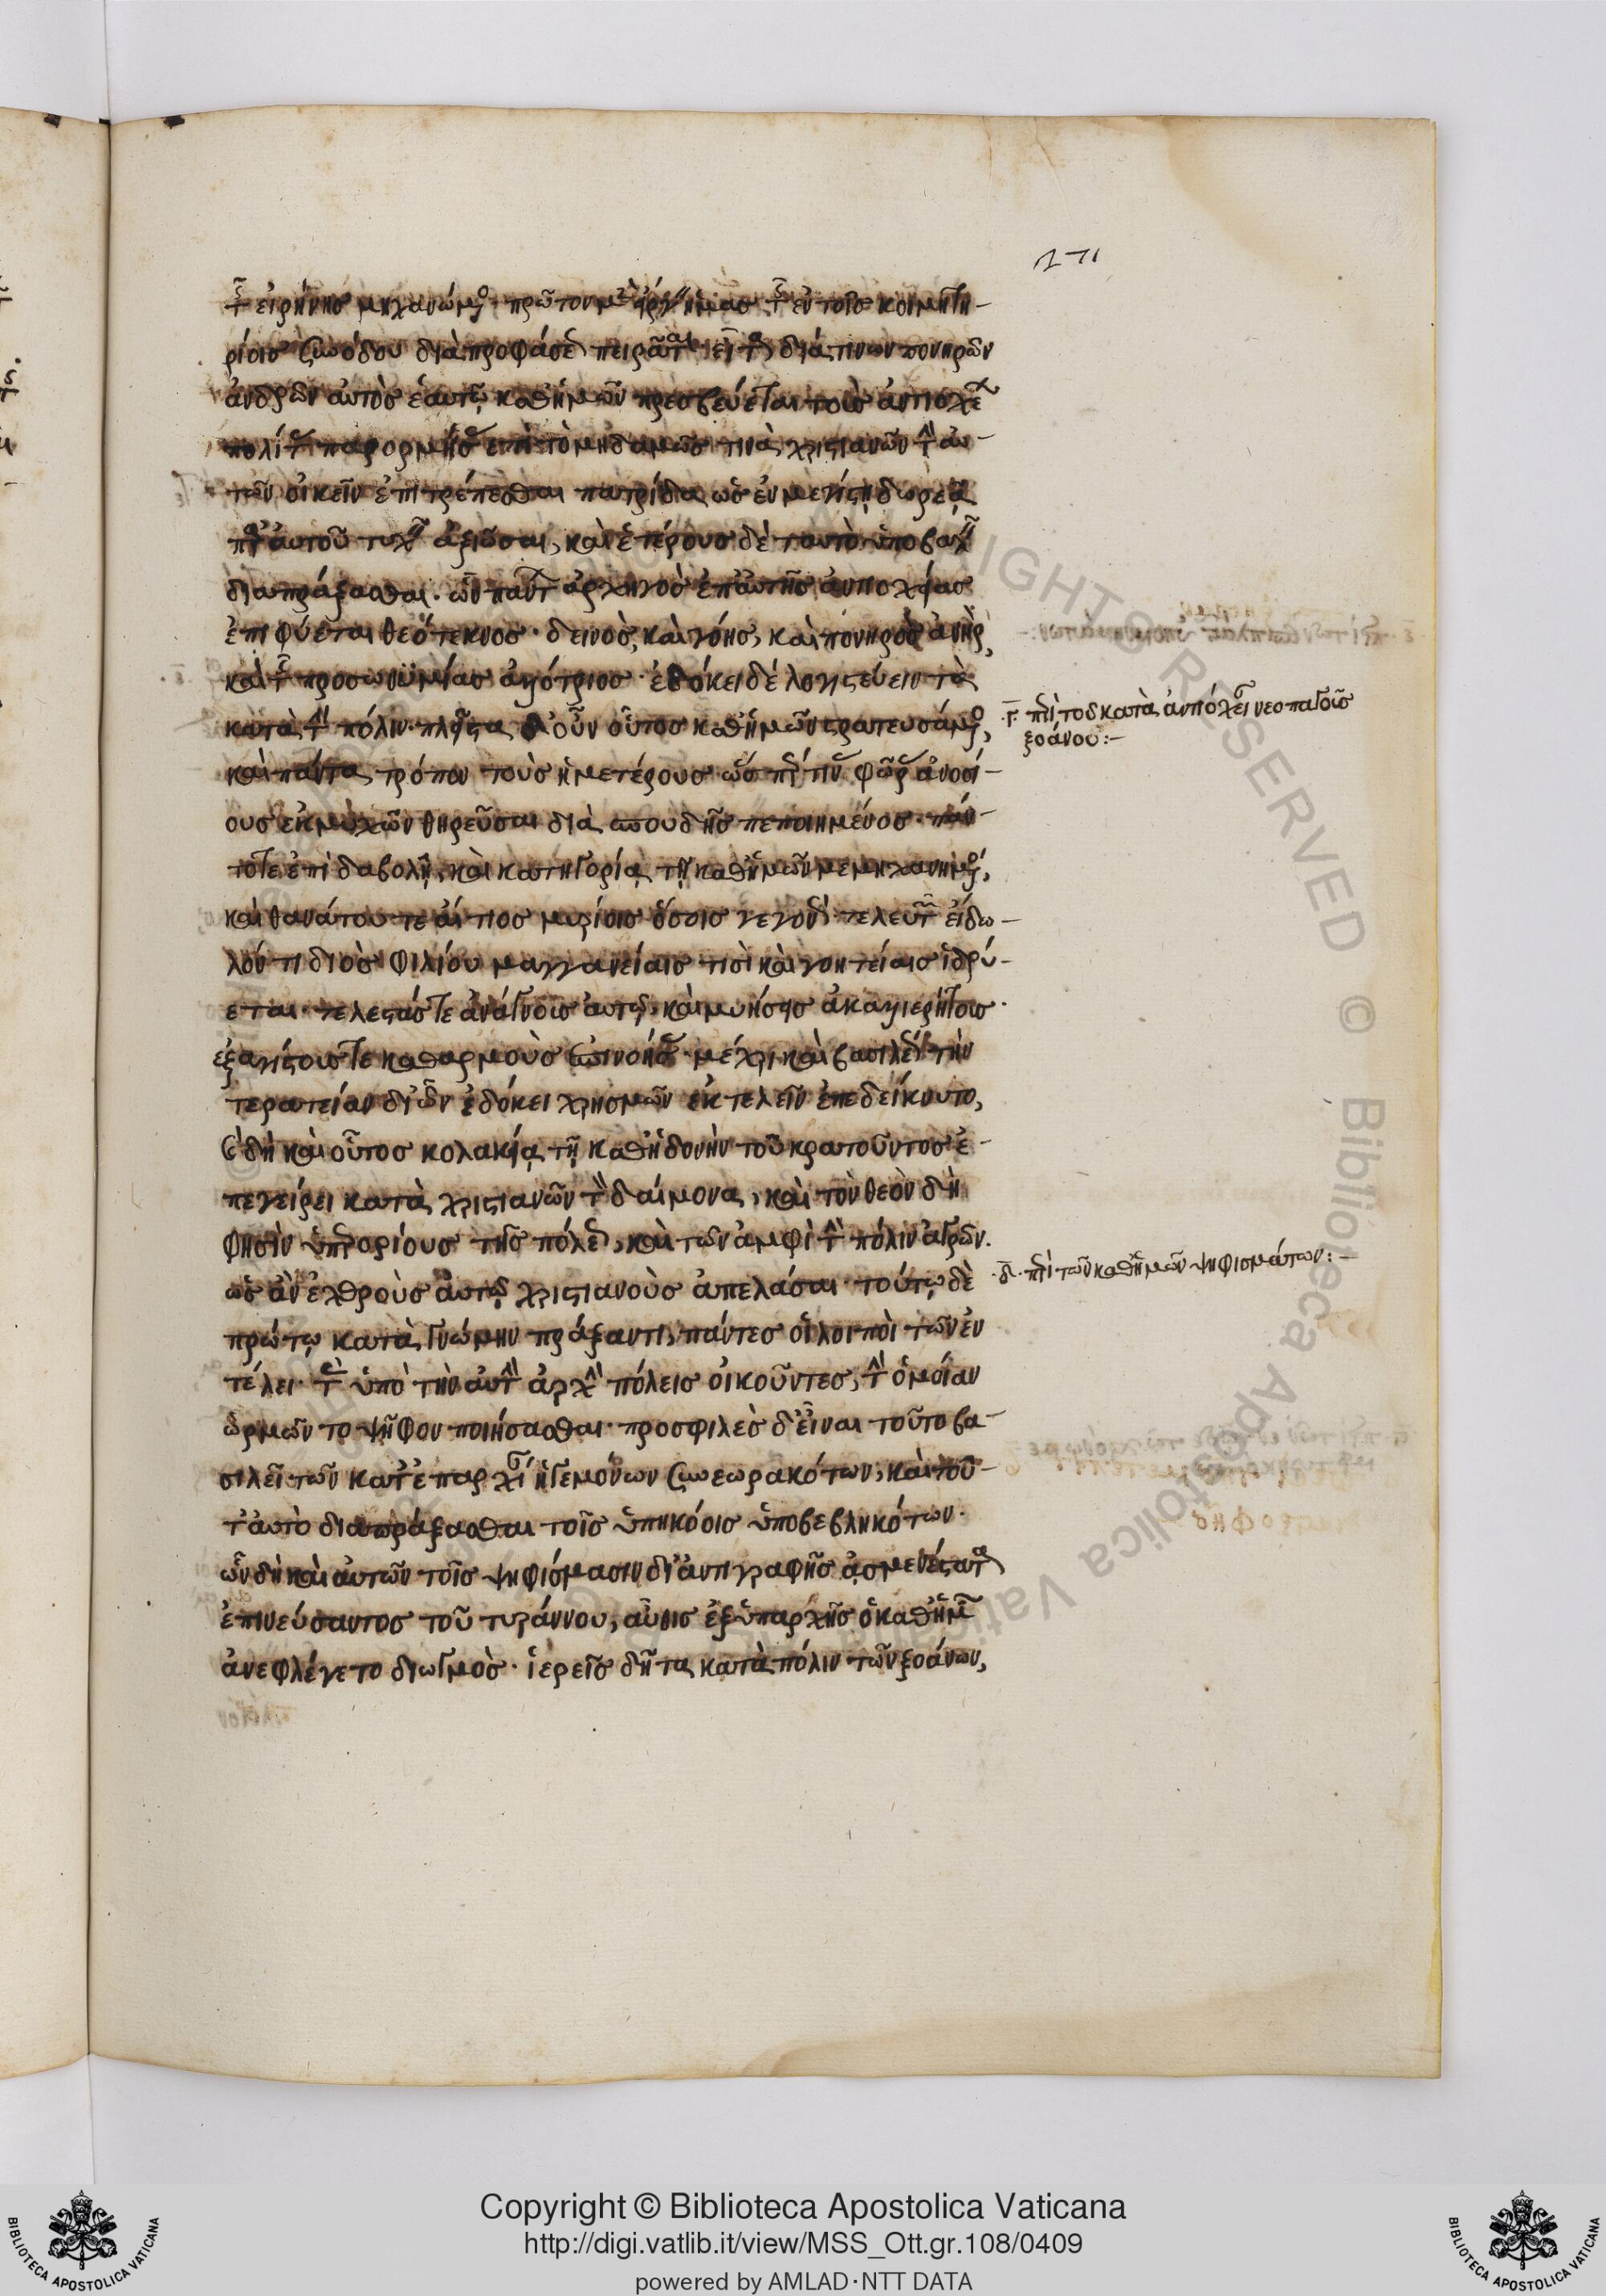 171
τῆς εἰρήνης μηχανώμενος πρῶτον μὲν εἴργειν ἡμᾶς τῆς ἐν τοῖς κοιμητη-
ρίοις συνόδου διὰ προφάσεως πειρᾶται· εἶτα διά τινων πονηρῶν
ἀνδρῶν αὐτὸς ἑαυτῷ καθ' ἡμῶν πρεσβεύεται τοὺς ἀντιοχέων
πολίτας παρορμήσας ἐπὶ τὸ μηδαμῶς τινὰ χριστιανῶν τὴν αὐ-
τῶν οἰκεῖν ἐπιτρέπεσθαι πατρίδα ὡς ἐν μεγίστῃ δωρεᾷ
παρ' αὐτοῦ τυχεῖν ἀξιῶσαι, καὶ ἑτέρους δὲ ταυτὸ ὑποβαλεῖν
διαπράξασθαι. ὧν πάντων ἀρχηγὸς ἐπ' αὐτῆς ἀντιοχείας
ἐπιφύεται θεότεκνος· δεινὸς, καὶ γόης, καὶ πονηρὸς ἀνὴρ,
καὶ τῆς προσωνυμίας ἀλλότριος· ἐδόκει δὲ λογιστεύειν τὰ
κατὰ τὴν πόλιν· πλεῖστα δ' οὖν οὗτος καθ' ἡμῶν στρατευσάμενος,
καὶ πάντα τρόπον τοὺς ἡμετέρους ὥσπερ τινὰς φῶρας ἀνοσί-
ους ἐκ μυχῶν θηρεῦσαι διὰ σπουδῆς πεποιημένος· πάν-
τά τε ἐπὶ διαβολῇ, καὶ κατηγορίᾳ τῇ καθ' ἡμῶν μεμηχανημένος,
καὶ θανάτου τε αἴτιος μυρίοις ὅσοις γεγονώς· τελευτῶν εἴδω-
λόν τι διὸς φιλίου μαγγανείαις τισὶ καὶ γοητείαις ἱδρύ-
εται· τελετάς τε ἀνάγνους αὐτῷ, καὶ μυήσεις ἀκαλλιερήτους·
ἐξαγίστους τε καθαρμοὺς ἐπινοήσας· μέχρι καὶ βασιλέως τὴν
τερατείαν δι' ὧν ἐδόκει χρησμῶν ἐκτελεῖν ἐπεδείκνυτο,
καὶ δὴ καὶ οὗτος κολακίᾳ τῇ καθ' ἡδονὴν τοῦ κρατοῦντος ἐ-
πεγείρει κατὰ χριστιανῶν τὸν δαίμονα, καὶ τὸν θεὸν δὴ
φησὶν ὑπερορίους τῆς πόλεως, καὶ τῶν ἀμφὶ τὴν πόλιν ἀγρῶν.
ὡς ἂν ἐχθροὺς αὐτῷ χριστιανοὺς ἀπελάσαι· τούτῳ δὲ
πρώτῳ κατὰ γνώμην πράξαντι, πάντες οἱ λοιποὶ τῶν ἐν
τέλει· τὰς ὑπὸ τὴν αὐτὴν ἀρχὴν πόλεις οἰκοῦντες, τὴν ὁμοίαν
ὡρμῶντο ψῆφον ποιήσασθαι· προσφιλὲς δ' εἶναι τοῦτο βα-
σιλεῖ τῶν κατ' ἐπαρχίαν ἡγεμόνων συνεωρακότων, καὶ τοῦ-
τ' αὐτὸ διαπράξασθαι τοῖς ὑπηκόοις ὑποβεβληκότων.
ὧν δὴ καὶ αὐτῶν τοῖς ψηφίσμασιν δι' ἀντιγραφῆς ἀσμενέστατα
ἐπινεύσαντος τοῦ τυράννου, αὖθις ἐξ ὑπαρχῆς ὁ καθ' ἡμῶν
ἀνεφλέγετο διωγμὸς· ἱερεῖς δῆτα κατὰ πόλιν τῶν ξοάνων,
γ. περὶ τοῦ κατὰ ἀντιόχειαν νεοπαγοῦς
ξοάνου:—
δ. περὶ τῶν καθ' ἡμῶν ψηφισμάτων:—
RIGHTS RESERVED © Biblioteca Apostolica Vaticana
Copyright © Biblioteca Apostolica Vaticana
http://digi.vatlib.it/view/MSS_Ott.gr.108/0409
powered by AMLAD·NTT DATA
BIBLIOTECA APOSTOLICA VATICANA
BIBLIOTECA APOSTOLICA VATICANA